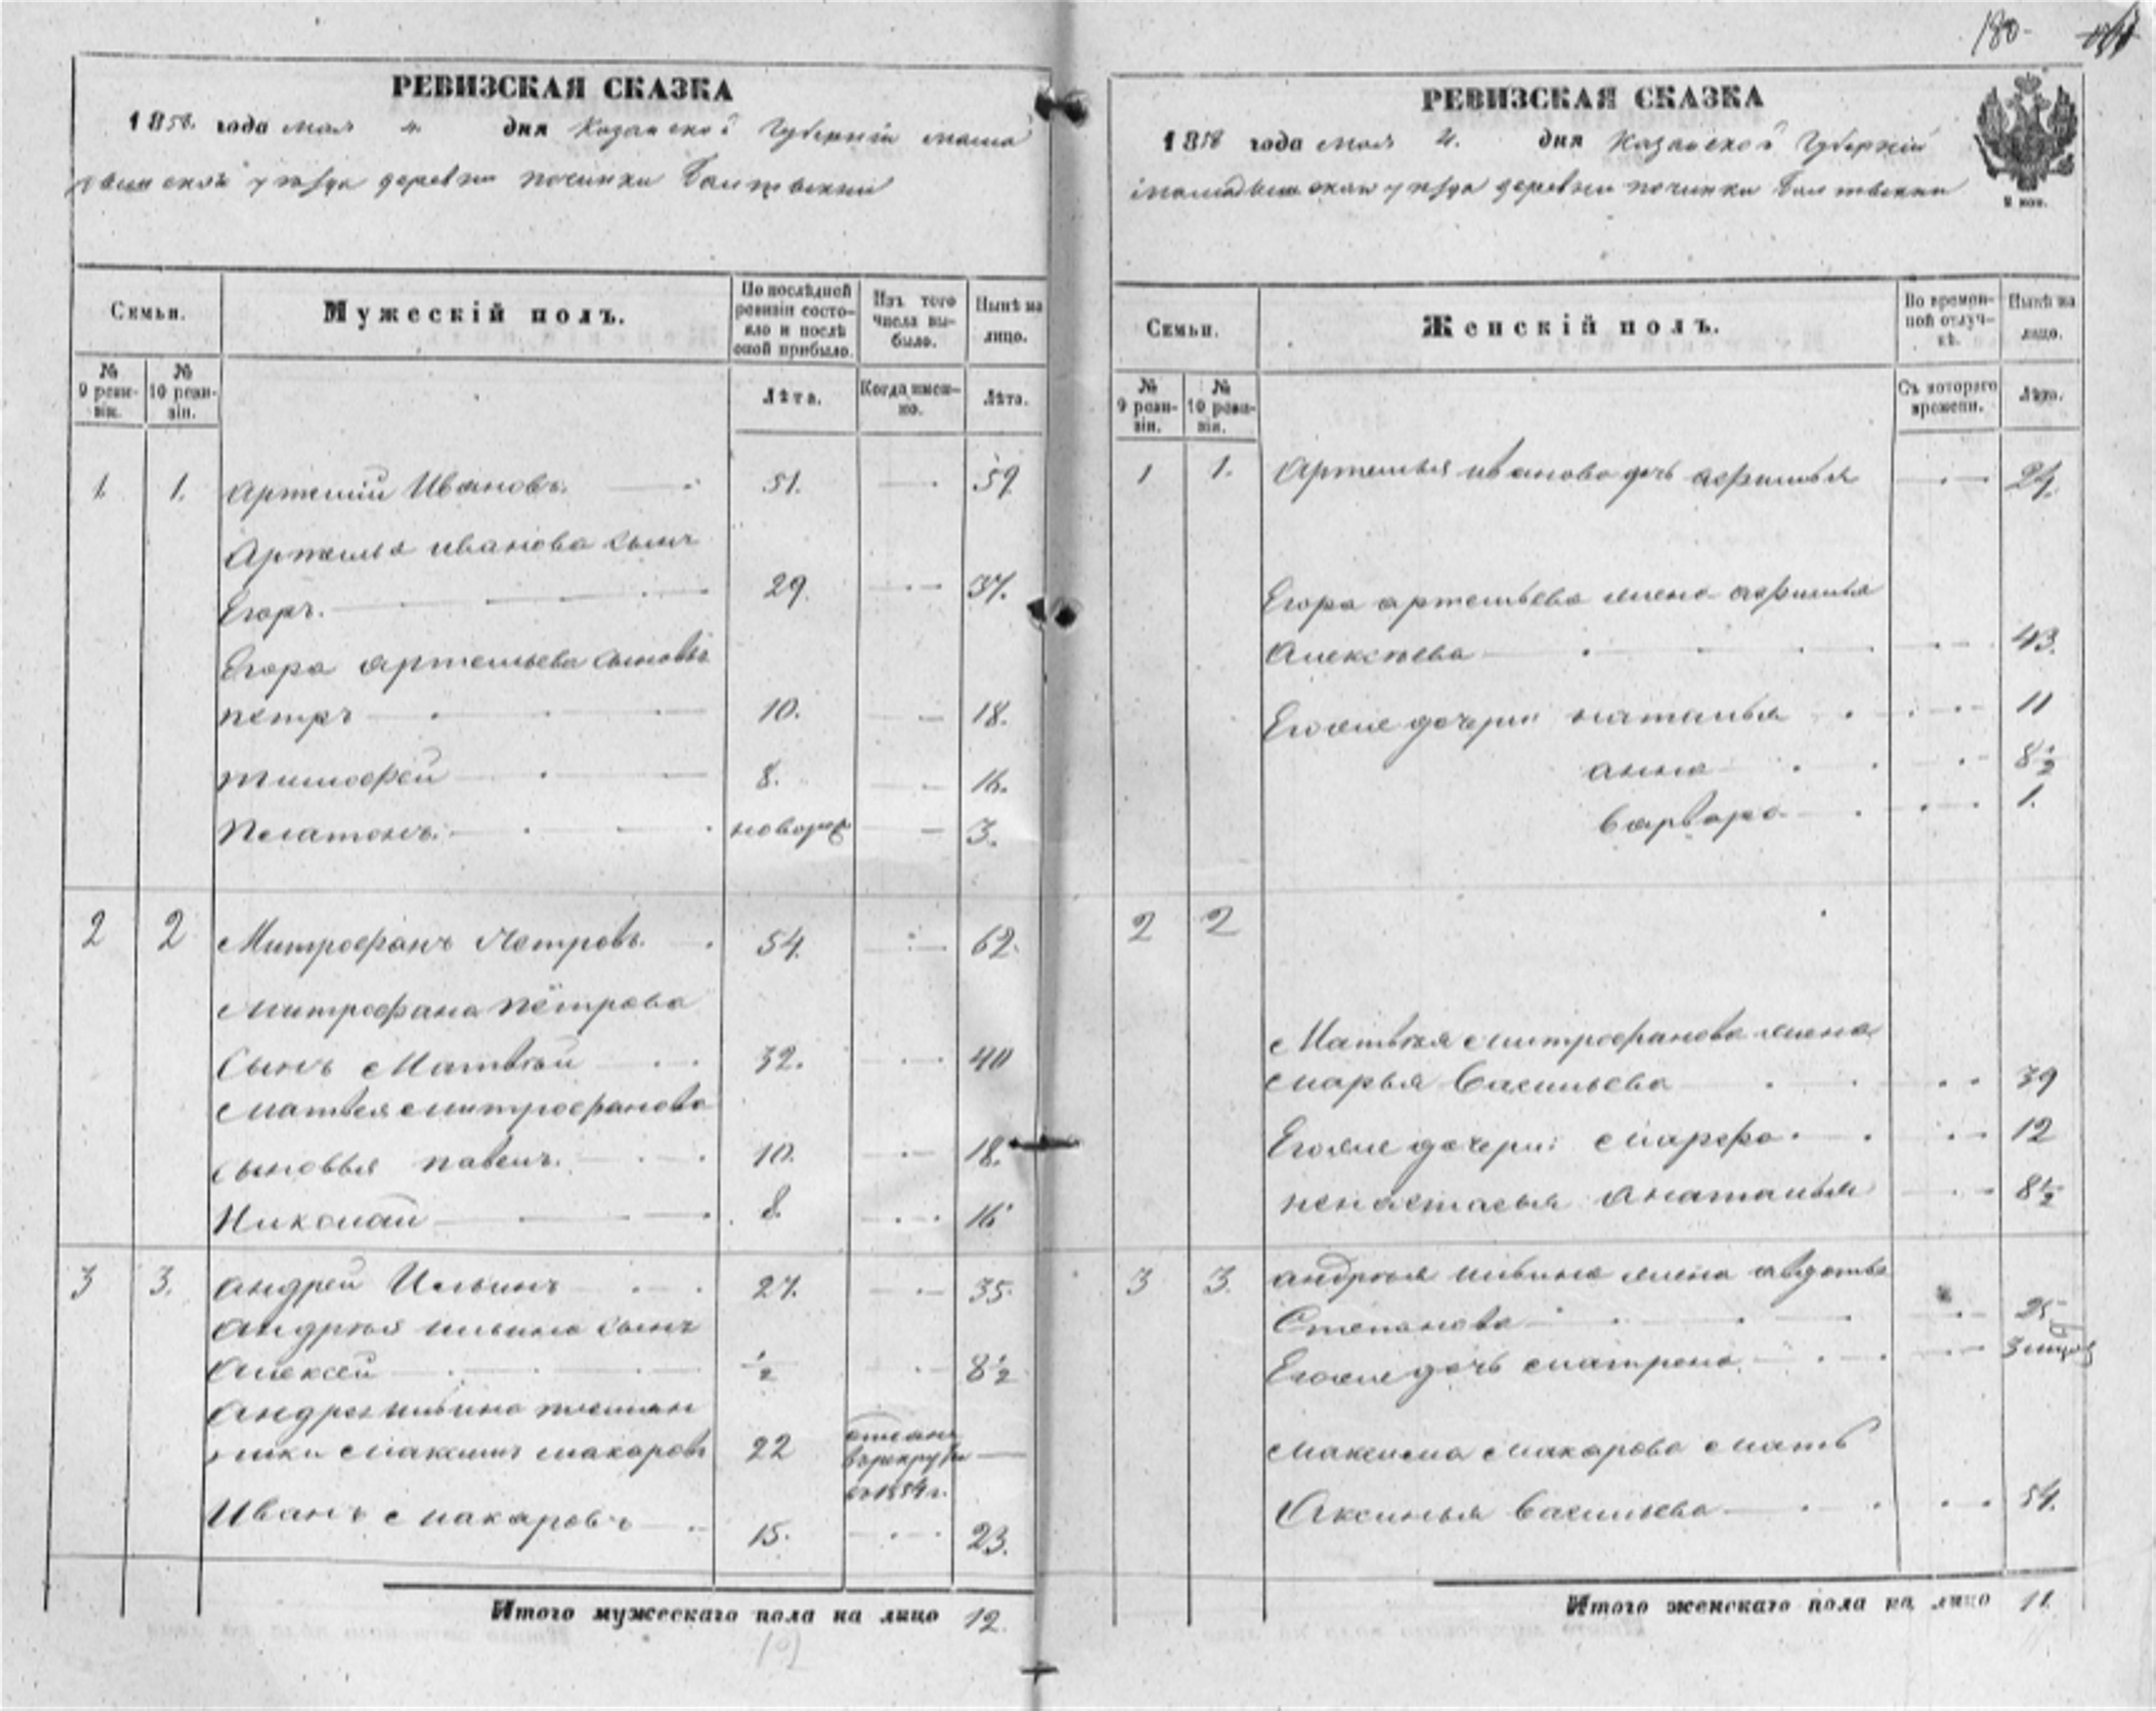 180.
РЕВИЗСКАЯ СКАЗКА
1858. года мая 4. дня Казанской Губерніи мама
дышскаго уѣзда деревни починки
Семьи.
Мужескій полъ.
По послѣдней ревизіи состо-
яло и послѣ оной прибыло.
Изъ того числа вы-
было.
Нынѣ на лицо.
№ 9 реви-
зіи.
№ 10 реви-
зіи.
Лѣта.
Когда имен-
но.
Лѣта.
1. 1. Артемій Ивановъ. 51. 59.
Артемья иванова сынъ
Егоръ. 29. 37.
Егора Артемьева сыновья
петръ 10. 18.
тимофей 8. 16.
Платонъ. новорож 3.
2 2 Митрофанъ Петровъ. 54. 62.
Митрофана Петрова
Сынъ Матвѣй 32. 40
Матвея митрофанова
сыновья павелъ. 10. 18.
Николай 8. 16
3 3. Андрей Ильинъ 27. 35.
Андрея ильина сынъ
Алексей ½ 8½
Андрея ильина племян
ники Максимъ макаровъ 22 отдан
в рекруты
въ 1854 г.
Иванъ макаровъ 15. 23.
Итого мужескаго пола на лицо 12.
РЕВИЗСКАЯ СКАЗКА
1858 года мая 4. дня Казанской Губерніи
мамадышскаго уѣзда деревни починки
2 коп.
Семьи.
Женскій полъ.
Во времен-
ной отлуч-
кѣ.
Нынѣ на лицо.
№ 9 реви-
зіи.
№ 10 реви-
зіи.
Съ котораго времени.
Лѣта.
1 1. Артемья иванова дочь афимья
Егора артемьева жена афимья
Алексѣева 43.
Его же дочери наталья 11
анна 8½
варвара 1.
2 2
Матвѣя митрофанова жена
марья Васильева 39
Его же дочери: марфа. 12
наталья 8½
3 3. андрея ильина жена авдотья
Степанова 25
Его же дочь матрена
Максима макарова мать
Аксинья Васильева 54.
Итого женскаго пола на лицо 11.